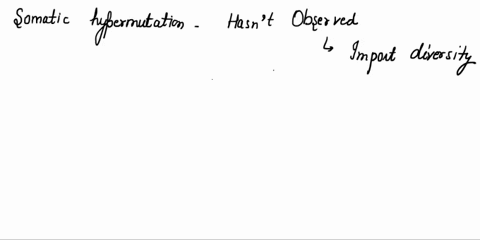 Somatic hypermutation - Hasn't Observed
↳ Impart diversity